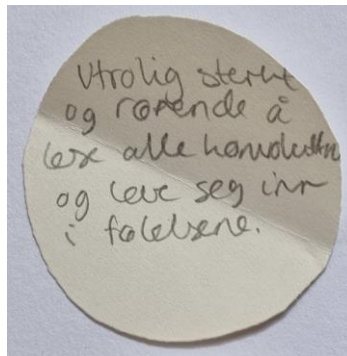 Utrolig sterkt
og rørende å
lese alle konvoluttene
og leve seg inn
i følelsene.